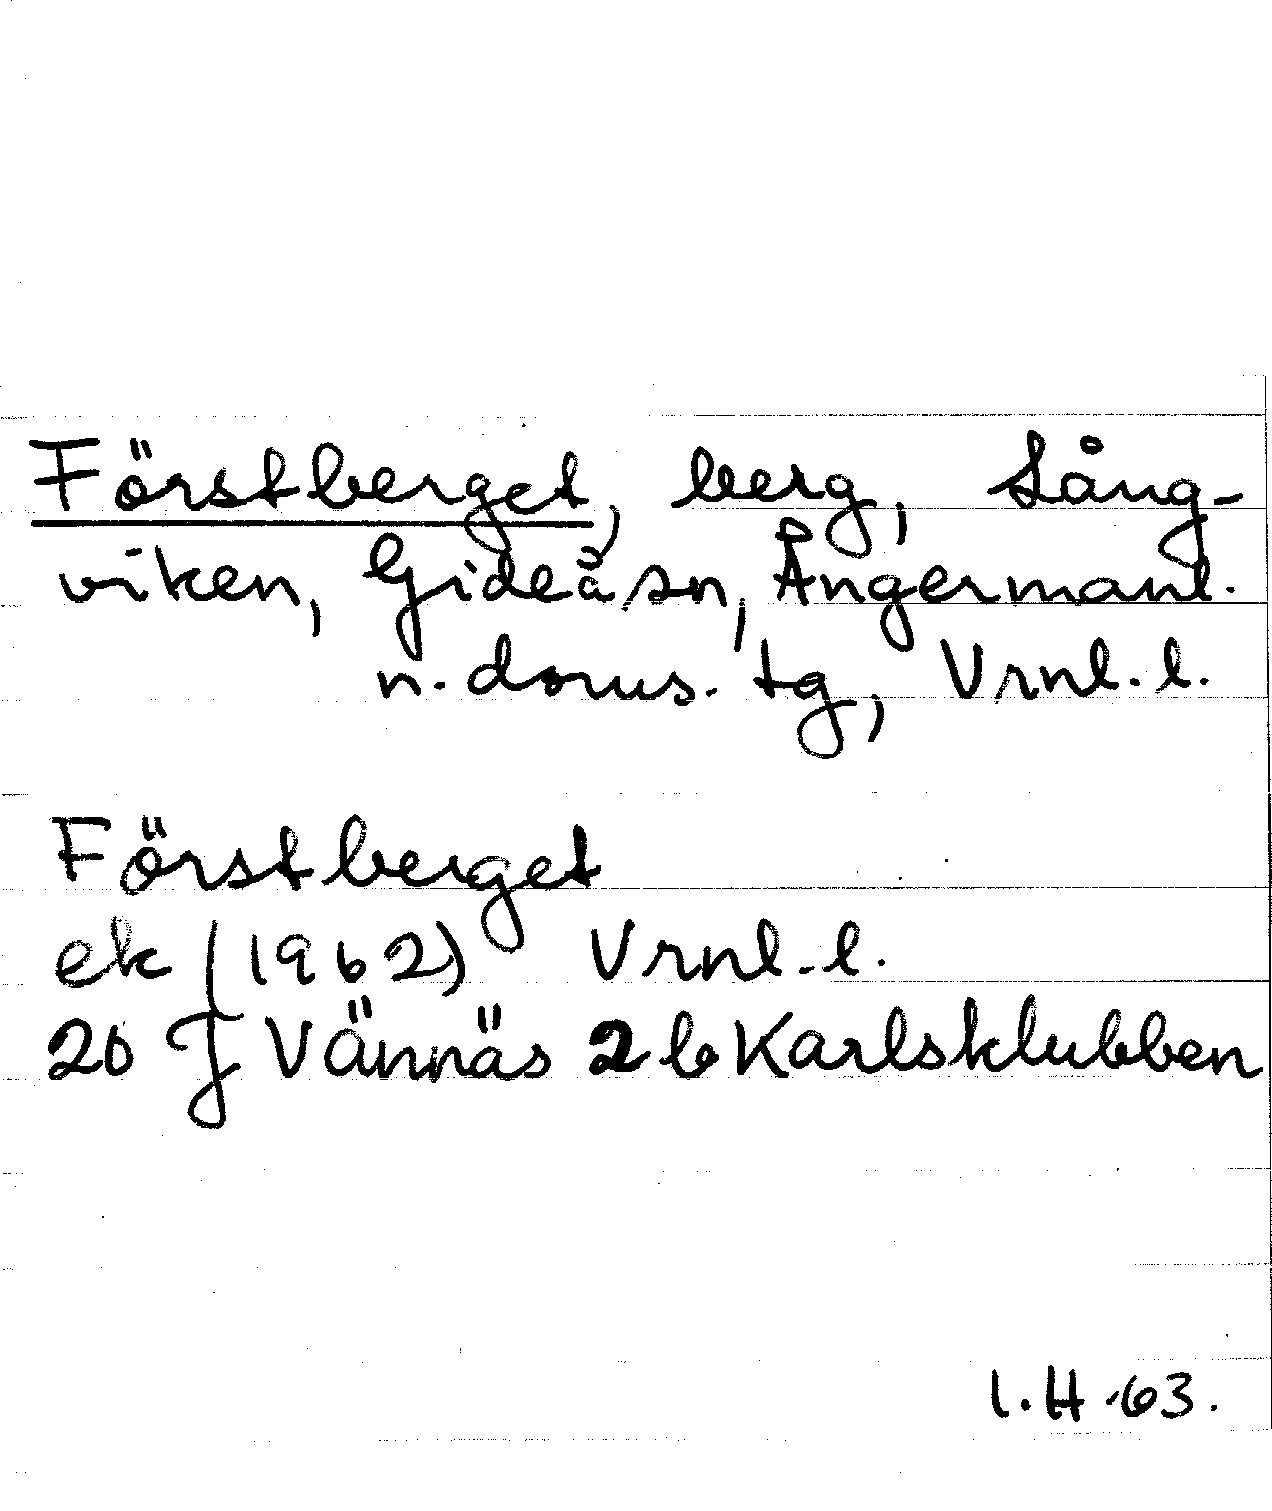 Förstberget, berg, Lång-
viken, Gideå sn, Ångermanl.
n. doms. tg, Vrnl. l.
Förstberget
ek (1962) Vrnl. l.
20 J Vännäs 2 b Karlsklubben
I. H -63.